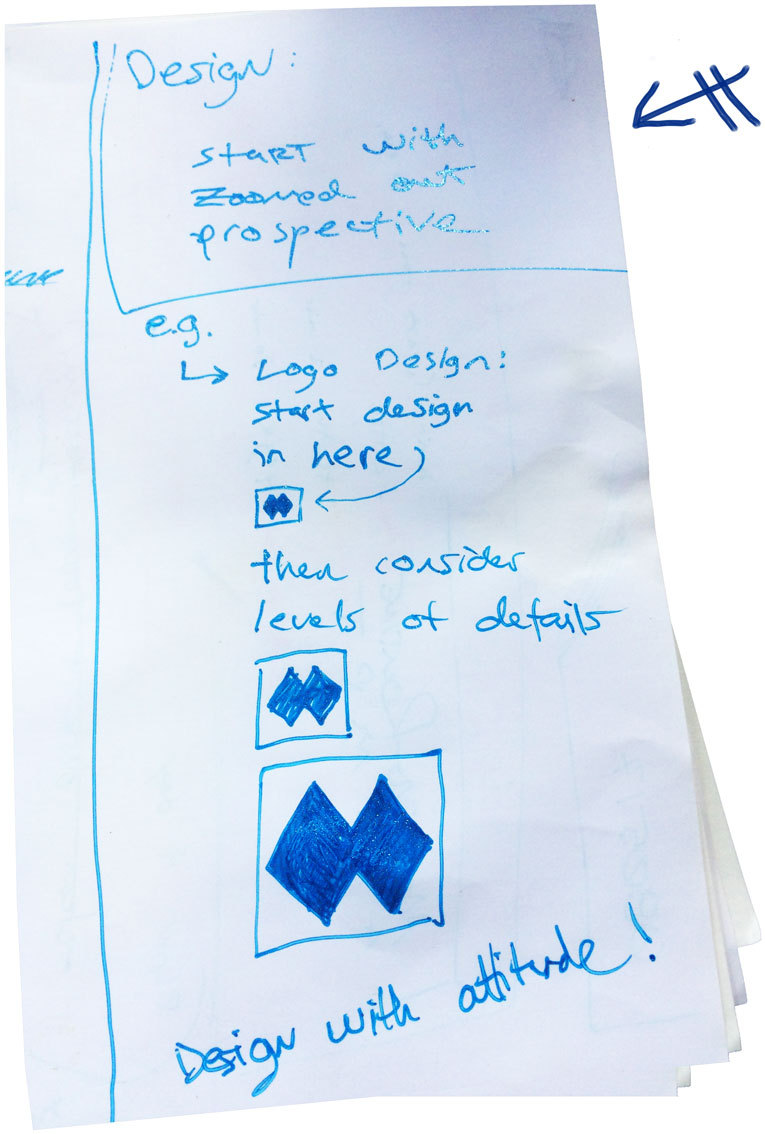 Design:
start with
zoomed out
prospective
e.g.
↳ Logo Design:
start design
in here
then consider
levels of details
Design with attitude!